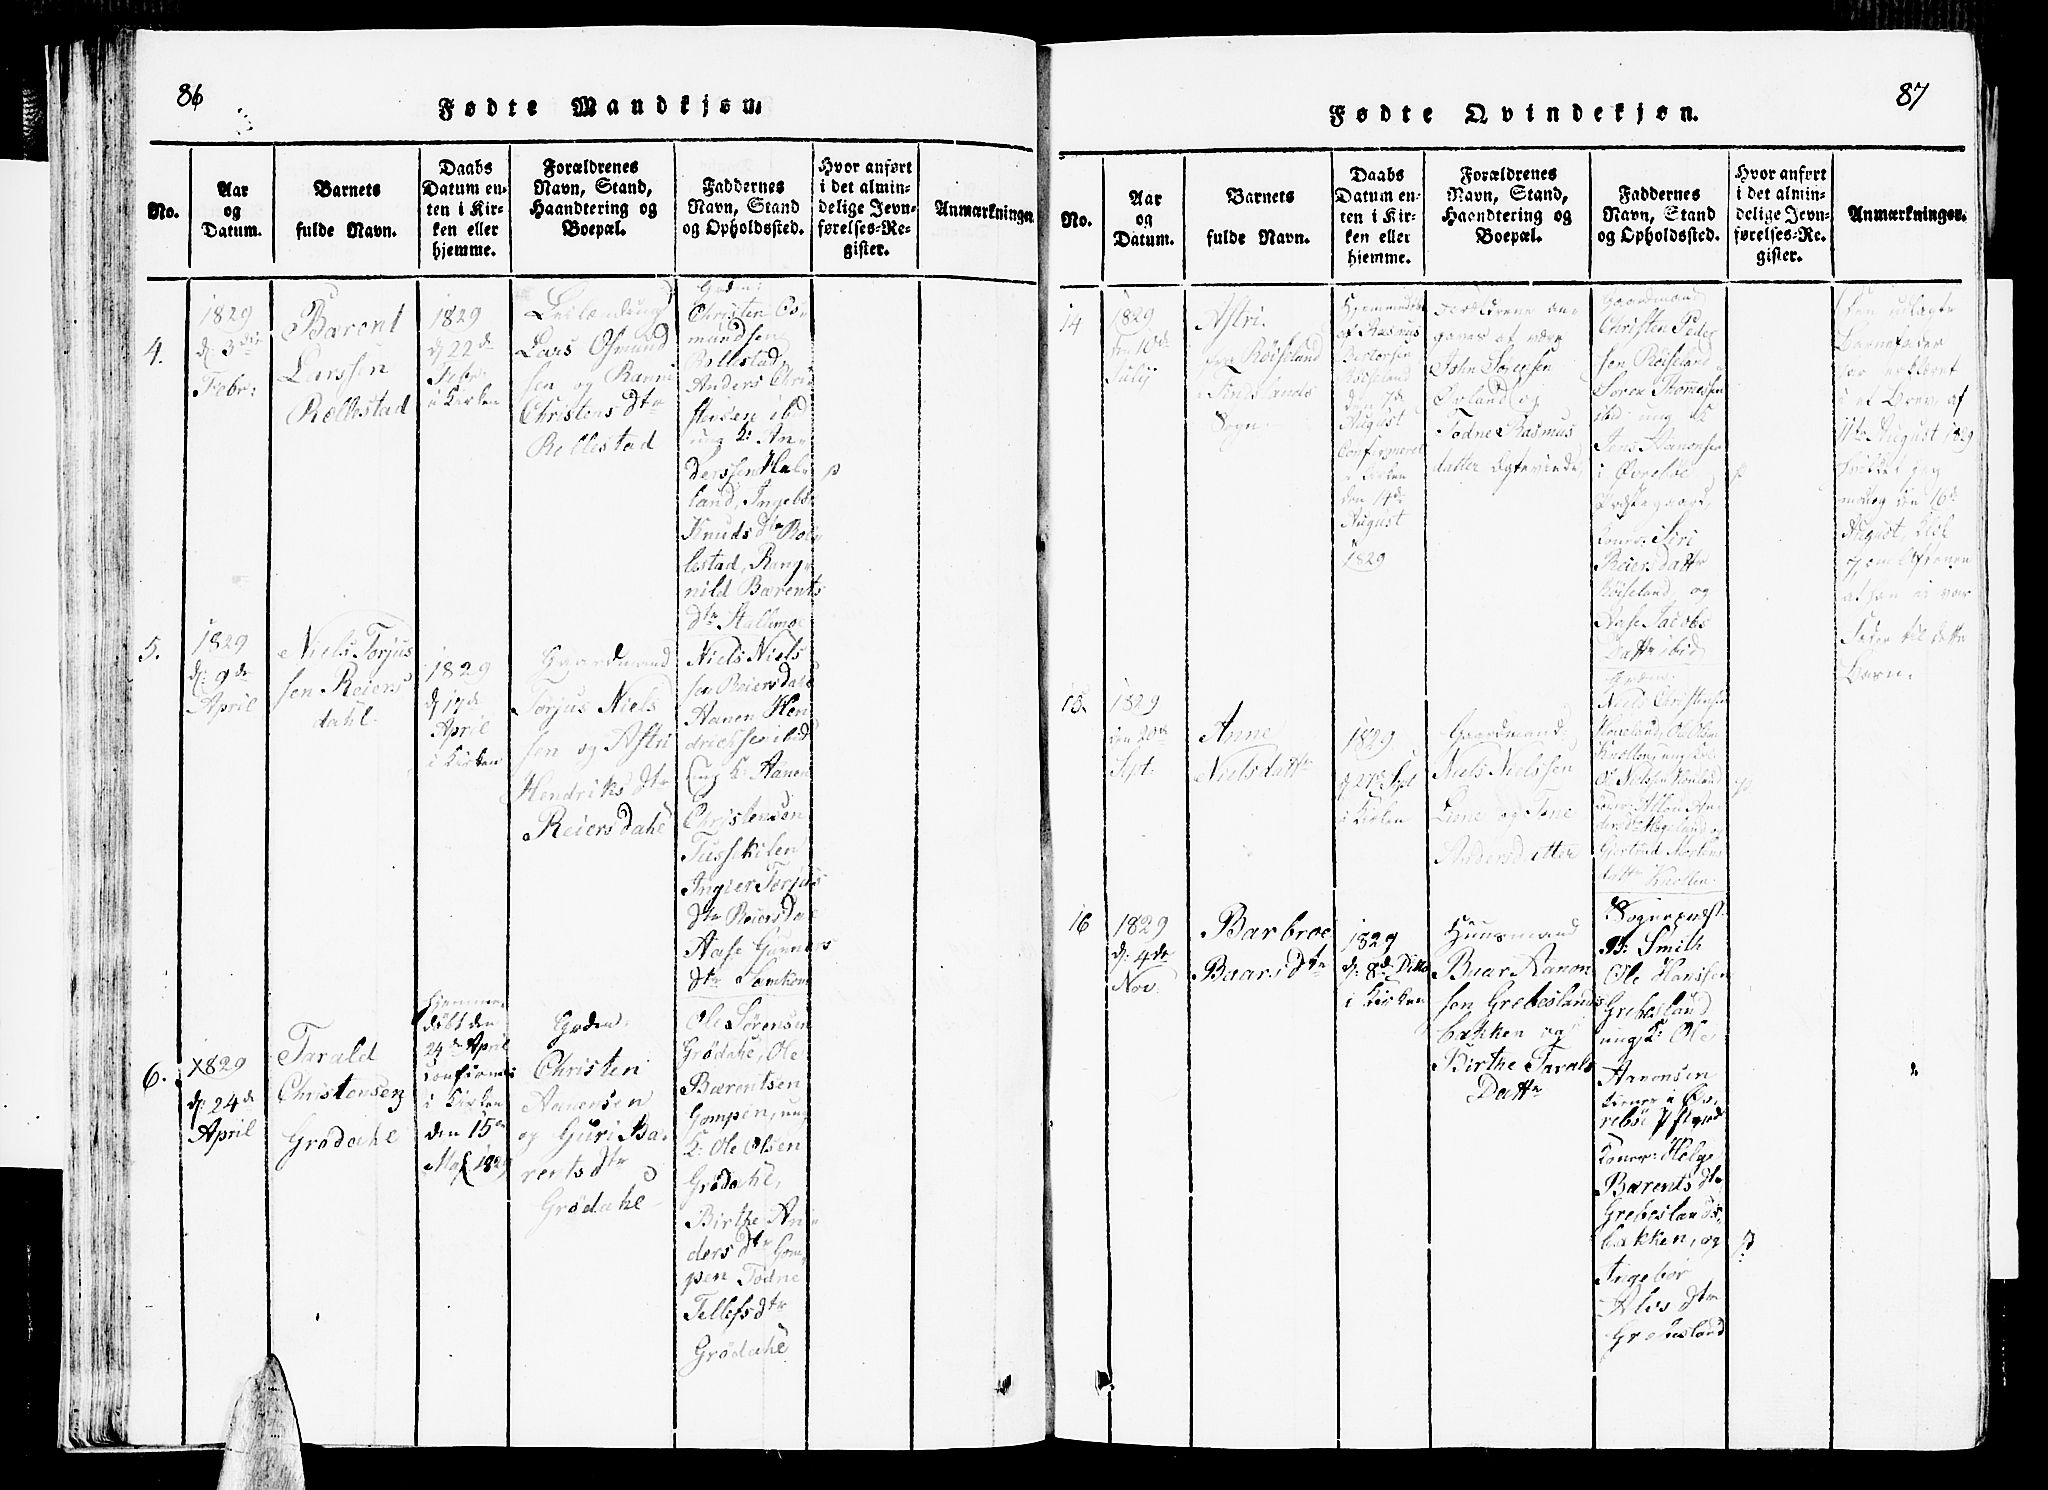 86
Fødte Mandkjøn.
No.
Aar
og
Datum.
Barnets
fulde Navn.
Daabs
Datum en-
ten i Kir-
ken eller
hjemme.
Forældrenes
Navn, Stand,
Haandtering og
Boepæl.
Faddernes
Navn, Stand
og Opholdssted.
Hvor anført
i det almin-
delige Jevn-
førelses-Re-
gister.
Anmærkninge
4.
1829
d: 3die
Febr:
Bærent
Larssen
Rollestad
1829
d 22de
Febr:
i Kirken
Leilænding
Lars Osmund
sen og Ranni
Christens dtr
Rollestad
Grdm:
Christen Os-
mundsen
Rollestad,
Anders Chri
stensen ibd
ung K: An-
derssen Hal-
land, Ingeb:
Knuds dtr Rol
lestad, Rang-
nild Bærents
dtr Stallemoe
p
5.
1829
d: 9de
April
Niels Torjus
sen Reiers
dahl.
1829
d 17de
April
i Kirken
Gaardmand
Torjus Niels
sen og Astri
Hendriks dtr
Reiersdahl
Niels Niels
sen Reiersdahl
Aanen Hen
drichsen ibid
ung K: Aanen
Christensen
Ingier Torjus
dtr Reiersdal
Aase Gunners
dtr
6.
1829
d: 24de
April
Tarald
Christensen
Grødahl
Hjemme
døbt den
24de April
Confirmer
i Kirken
den 15de
Maj 1829
Grdm.
Christen
Aanensen
og Guri Bæ-
rents dtr
Grødahl
Ole Sørensen
Grødahl, Ole
Bærentsen
Gompen, ung
K: Ole Olsen
Grødahl,
Birthe An-
ders dtr Gom
pen Todne
Tellefs dtr
Grødahl
87
Fødte Qvindekjøn.
No.
Aar
og
Datum.
Barnets
fulde Navn.
Daabs
Datum en-
ten i Kir-
ken eller
hjemme.
Forældrenes
Navn, Stand,
Haandtering og
Boepæl.
Faddernes
Navn, Stand
og Opholdssted.
Hvor anført
i det almin-
delige Jevn-
førelses-Re-
gister.
Anmærkninger.
14
1829
den 10de
Julij
Astri.
fra Røiseland
i Findslands
Sogn.
Hjemmedøbt
af Rasmus
Bertorsen
Røiseland
den 7de
August
Confirmeret
i Kirken
den 14de
August
1829
Forældrene an-
gaves at være
John Sørensen
Øvland og
Todne Rasmus
datter
Gaardmand
Christen Peder
sen Røiseland
Soren Thomessen
ibid: ung K
Jens Hansonsen
i Øvrebøe
Præstegaard,
Koner: Siri
Reiersdattr
Røiseland, og
Aase Jacobs
Dattr ibid
p
Den udlagte
Barnefader
har erklæret
i et Brev af
11te August 1829
mod den 16de
August, Klok
7, om Aftenen
at han ei var
Fader til dette
Barn.
15.
1829
den 20de
Sept:
Anne
Nielsdattr
1829
d 27de Sept
i Kirken
Gaardmand
Niels Nielssen
Liene og Tone
Andersdatter
Grdm:
Niels Christensen
Ole Olsen
Gjertrud Mortens
dattr
p
16
1829
d: 4de
Nov:
Barbroe
Baarsdtr
1829
d: 8de Dito
i Kirken
Huusmand
Baar Aanon
sen Grebeslands
bakken og
Birthe Taralds
Dattr
Sognepræst
Hr Smith
Ole Hanssen
Grebesland
ung K: Ole
Aanonsen
tiener i Øv-
rebøe Pstgrd
Koner: Helge
Bærents dtr
Grebeslands
bakken, og
Ingebor
Alvs dtr
Grebesland
p